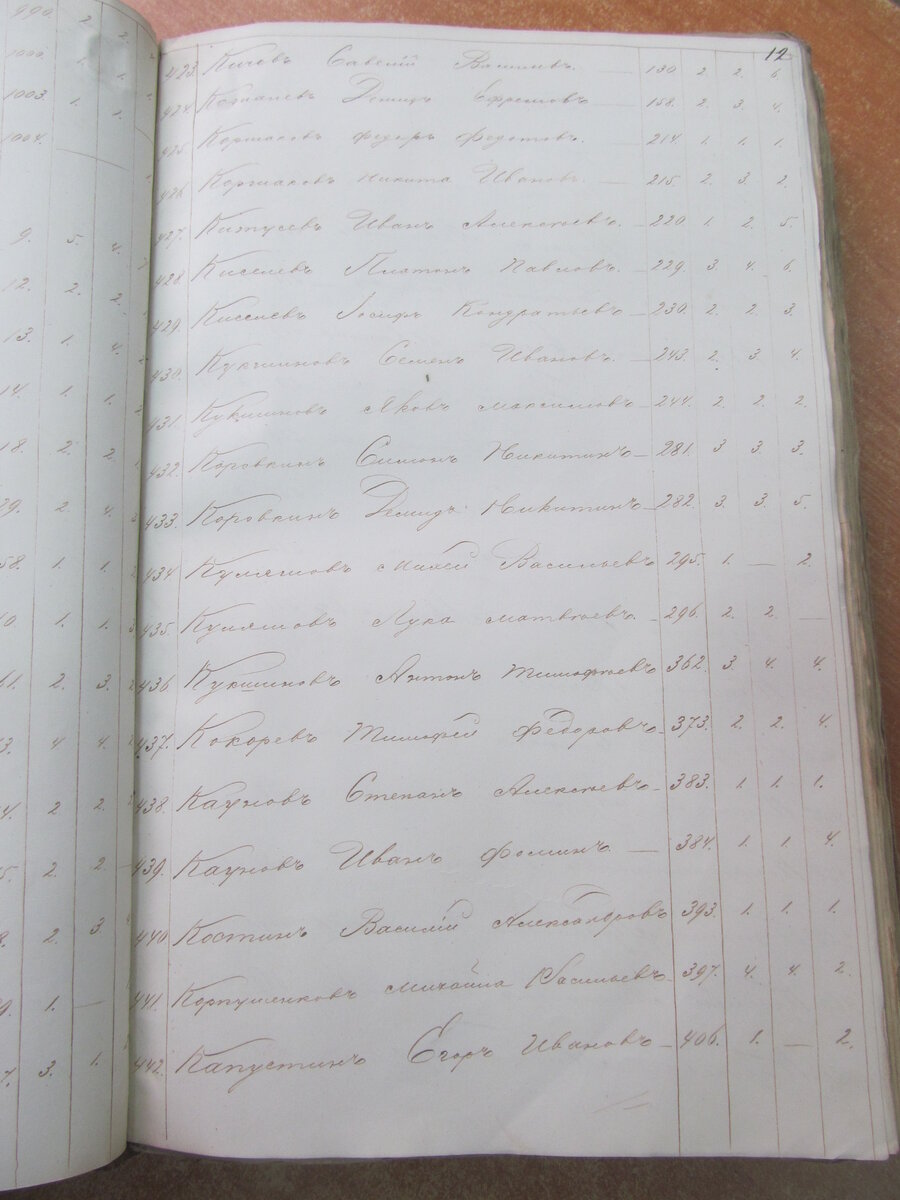 12
423. Кичовъ Савелій Васильевъ. — 130. 2. 2. 6.
424. Ефремовъ — 158. 2. 3. 4.
425. Коршаковъ Федоръ Федотовъ. 214. 1. 1. 1.
426. Коршаковъ Никита Ивановъ. — 215. 2. 3. 2.
427. Иванъ Алексѣевъ. — 220. 1. 2. 5.
428. Киселевъ Платонъ Павловъ. — 229. 3. 4. 6.
429. Киселевъ Іосифъ Кондратьевъ — 230. 2. 2. 3.
430. Кукшиновъ Семенъ Ивановъ. — 243. 2. 3. 4.
431. Кукшиновъ Яковъ Максимовъ — 244. 2. 2. 2.
432. Коровкинъ Симонъ Никитинъ — 281. 3 3. 3.
433. Коровкинъ Демидъ Никитинъ — 282. 3. 3. 5.
434. Куляшовъ Михей Васильевъ 295. 1. — 2.
435. Куляшовъ Лука Матвѣевъ. — 296. 2. 2. —
436. Кукшиновъ Антонъ Тимофѣевъ 362. 3. 4. 4.
437. Кокоревъ Тимофей Федоровъ — 373. 2. 2. 4.
438. Кауновъ Степанъ Алексѣевъ — 383. 1. 1. 1.
439. Кауновъ Иванъ Фоминъ. — 384. 1. 1. 4.
440. Костинъ Василій Александровъ 393. 1. 1. 1.
441. Корпушенковъ Михайла Васильевъ 397. 4. 4. 2.
442. Капустинъ Егоръ Ивановъ — 406. 1. — 2.